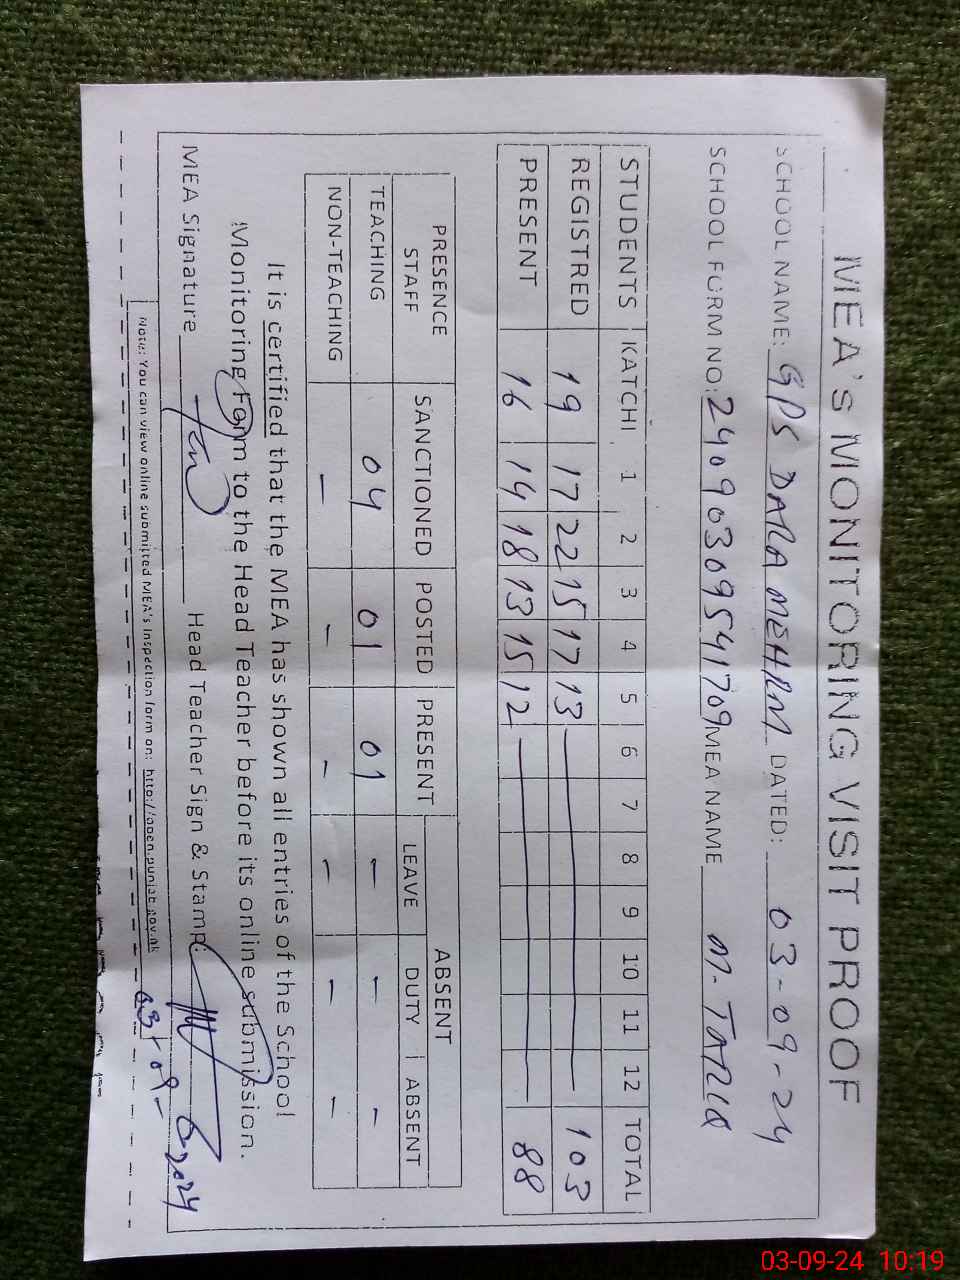 MEA's MONITORING VISIT PROOF
SCHOOL NAME: GPS DARA MEHRM DATED: 03-09-24
SCHOOL FORM NO: 24090309541709 MEA NAME M. TARIQ
STUDENTS KATCHI 1 2 3 4 5 6 7 8 9 10 11 12 TOTAL
REGISTRED 19 17 22 15 17 13 103
PRESENT 16 14 18 13 15 12 88
PRESENCE ABSENT
STAFF SANCTIONED POSTED PRESENT LEAVE DUTY ABSENT
TEACHING 04 01 01 - - -
NON-TEACHING - - - - - -
It is certified that the MEA has shown all entries of the School
Monitoring Form to the Head Teacher before its online submission.
MEA Signature Head Teacher Sign & Stamp:
03-09-2024
Note: You can view online submitted MEA's Inspection form on: http://open.punjab.gov.pk
03-09-24 10:19